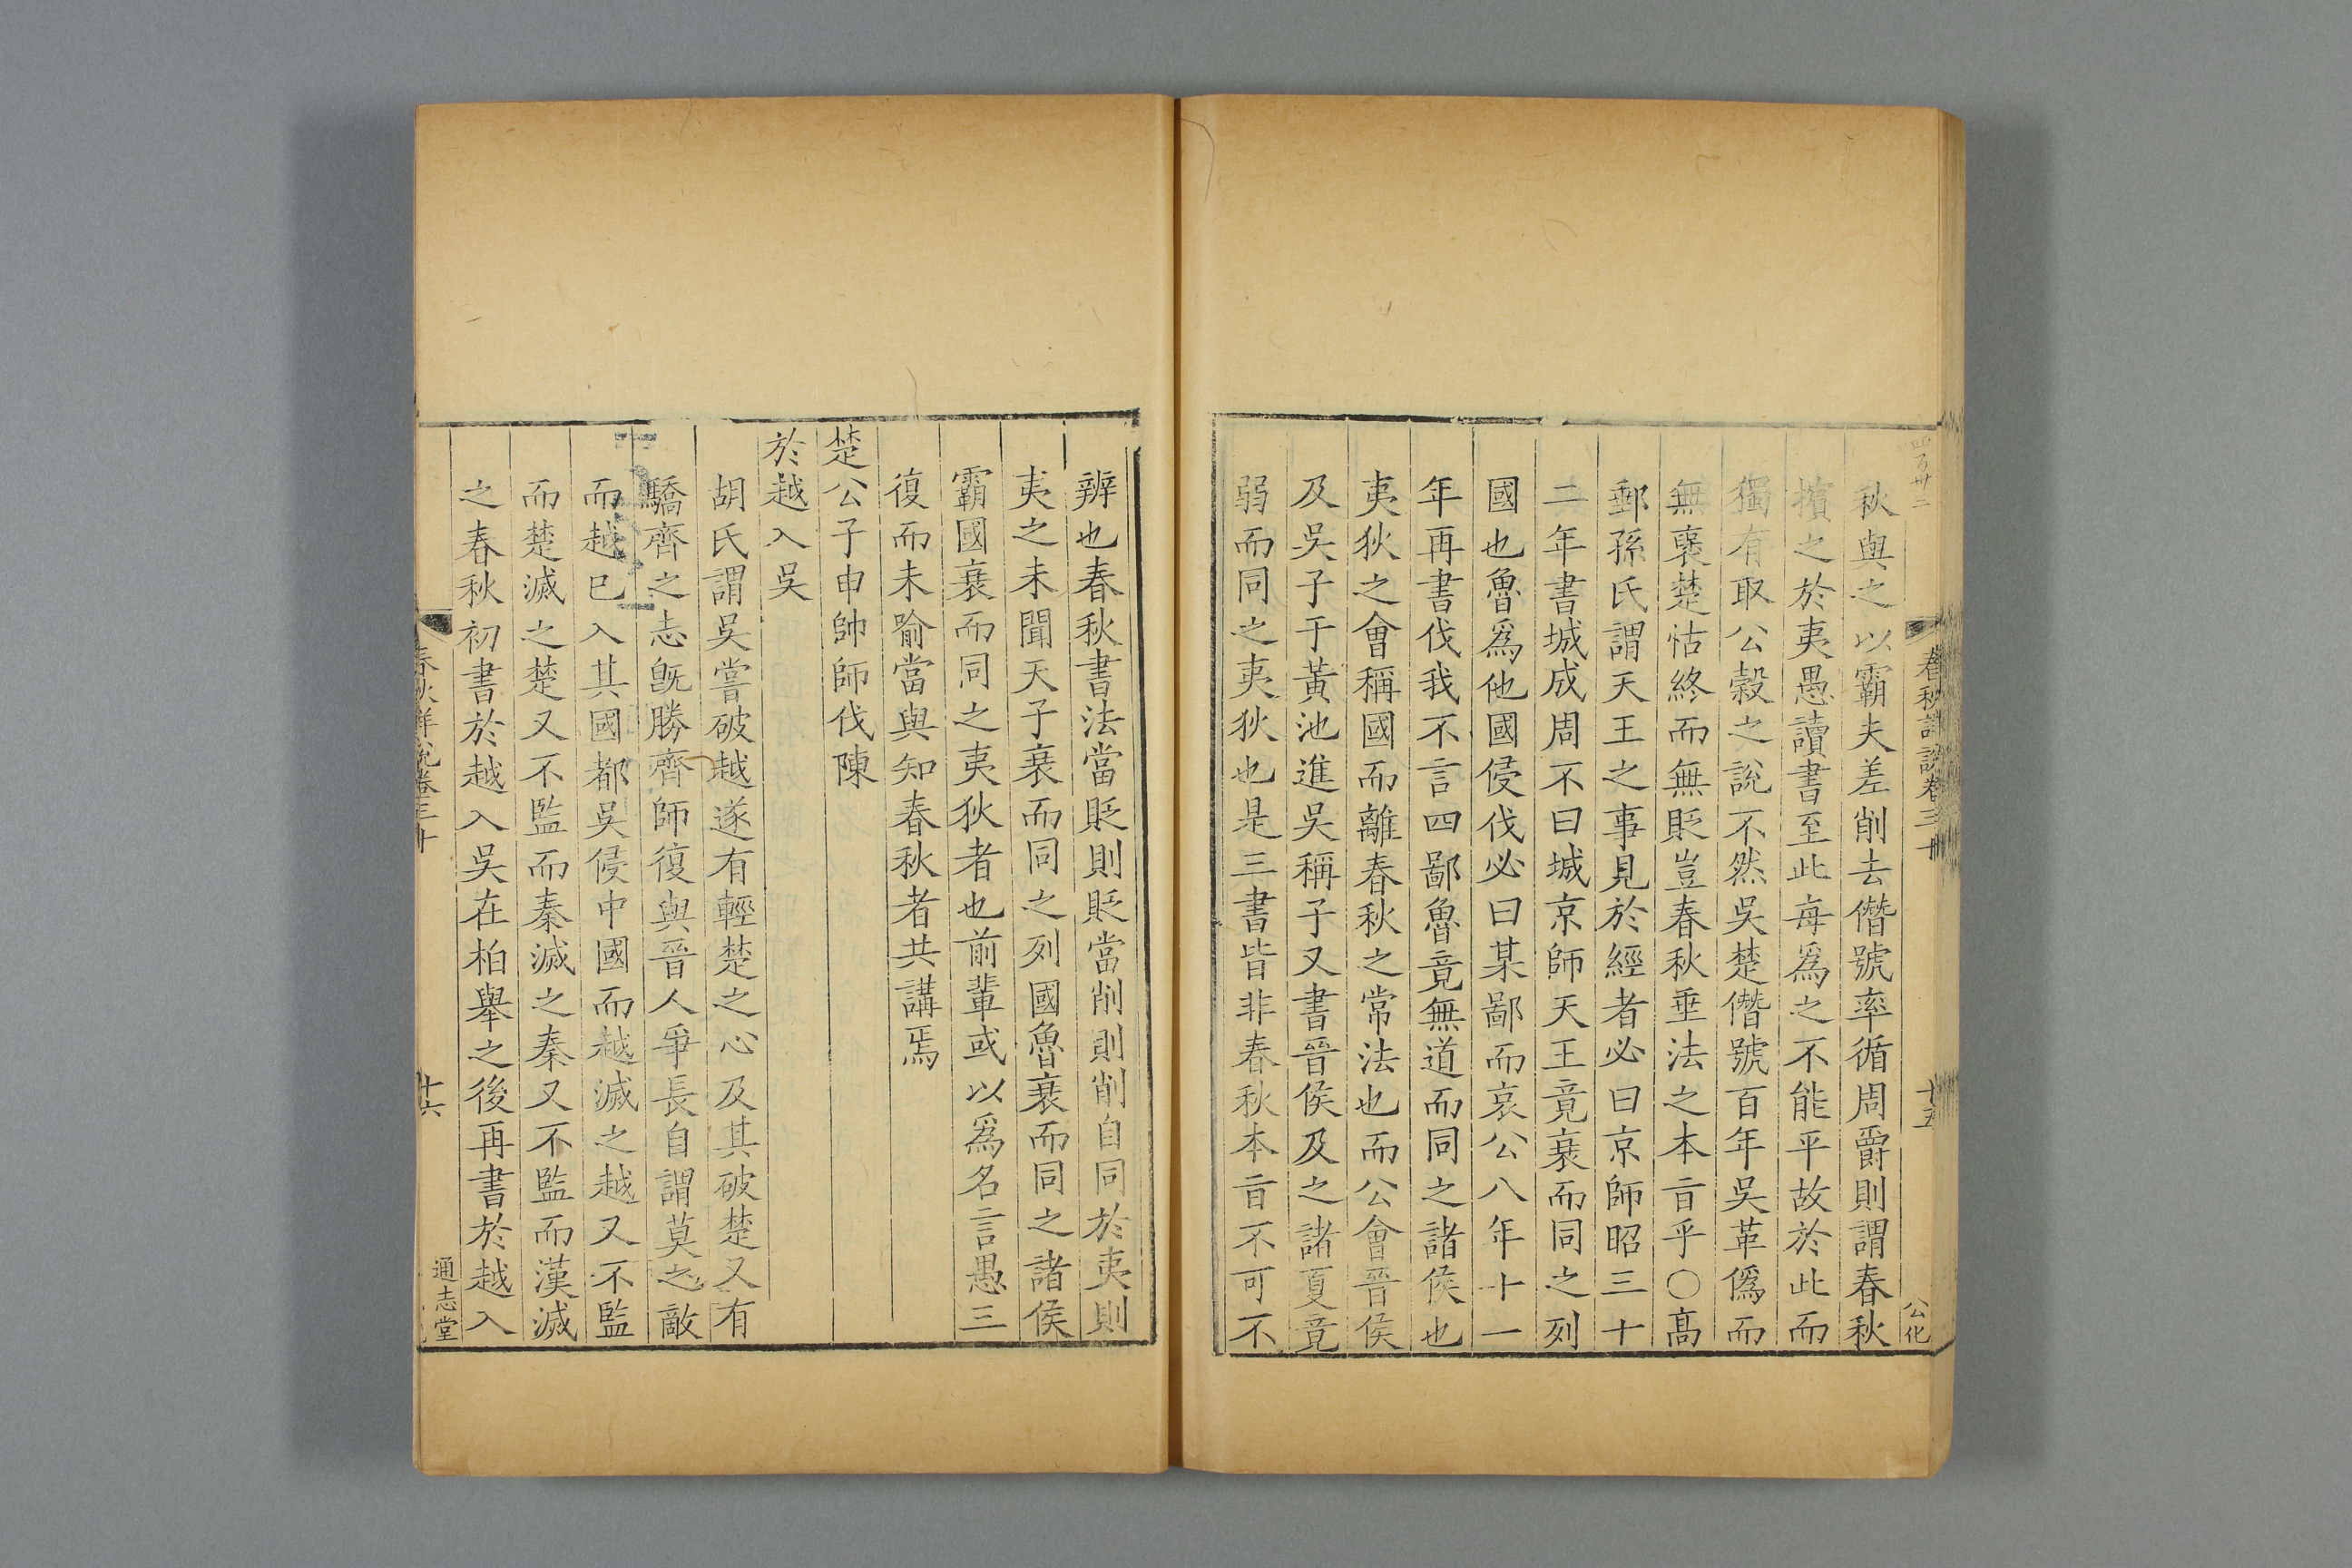 春秋詳說卷三十 十五 公化
秋與之以霸夫差削去僭號率循周爵則謂春秋
擯之於夷愚讀書至此每爲之不能平故於此而
獨有取公穀之說不然吳楚僭號百年吳革僞而
無襃楚怙終而無貶豈春秋垂法之本旨乎〇髙
郵孫氏謂天王之事見於經者必曰京師昭三十
二年書城成周不曰城京師天王竟衰而同之列
國也魯爲他國侵伐必曰某鄙而哀公八年十一
年再書伐我不言四鄙魯竟無道而同之諸侯也
夷狄之會稱國而離春秋之常法也而公會晉侯
及吳子于黃池進吳稱子又書晉侯及之諸夏竟
弱而同之夷狄也是三書皆非春秋本旨不可不
辨也春秋書法當貶則貶當削則削自同於夷則
夷之未聞天子衰而同之列國魯衰而同之諸侯
霸國衰而同之夷狄者也前輩或以爲名言愚三
復而未喻當與知春秋者共講焉
楚公子申帥師伐陳
於越入吳
胡氏謂吳嘗破越遂有輕楚之心及其破楚又有
驕齊之志旣勝齊師復與晉人爭長自謂莫之敵
而越已入其國都吳侵中國而越滅之越又不監
而楚滅之楚又不監而秦滅之秦又不監而漢滅
之春秋初書於越入吳在柏舉之後再書於越入
春秋詳說卷三十 十六 通志堂